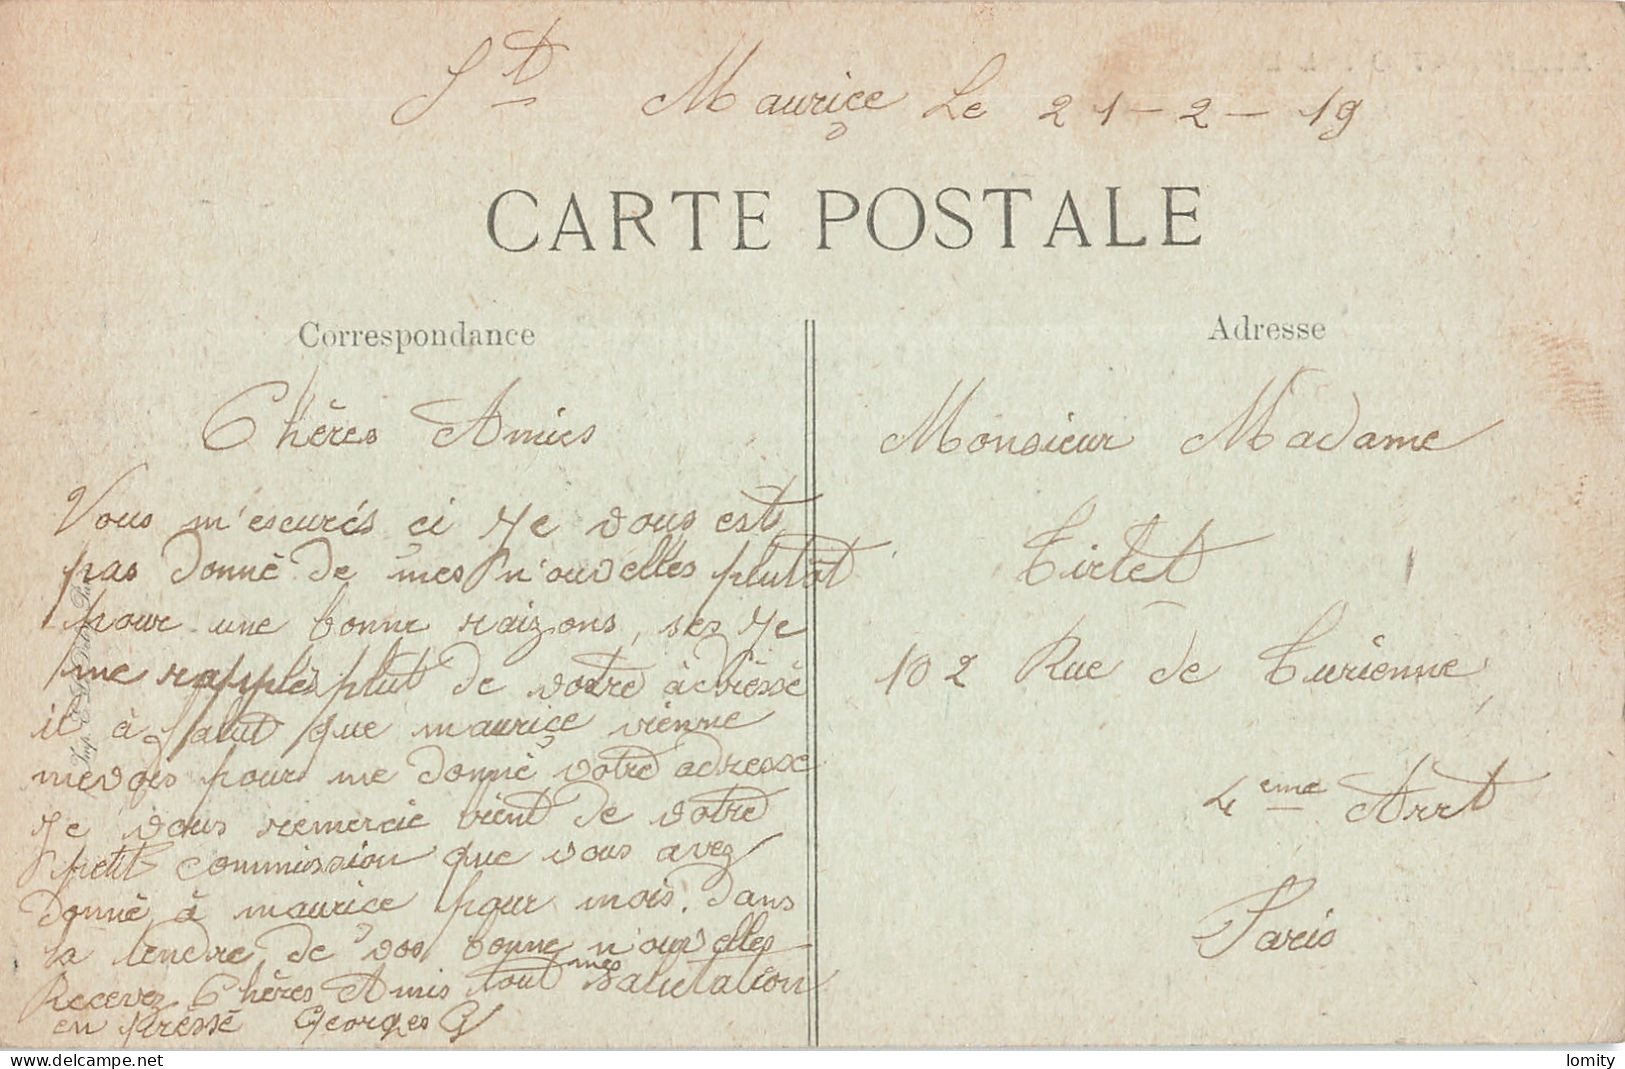 St Maurice Le 21-2-19
CARTE POSTALE
Correspondance
Chères Amies
Vous m'escurés ci Je vous est
pas donné de mes n'ouvelles plutôt
pour une bonne raizons, ses Je
me rapplés plut de votre àdréssé
il à falut que mauriçe vienne
mevoir pour me donné votre adresse
Je vous remercie bient de votre
petit commission que vous avez
donné à maurice pour mois. Dans
la tendre de vos bonne n'ouvelles
Recevez Chères Amis tout mes salutation
en préssé Georges G
Adresse
Monsieur Madame
Tirlet
102 Rue de Turienne
4eme Arrt
Paris
www.delcampe.net
lomity